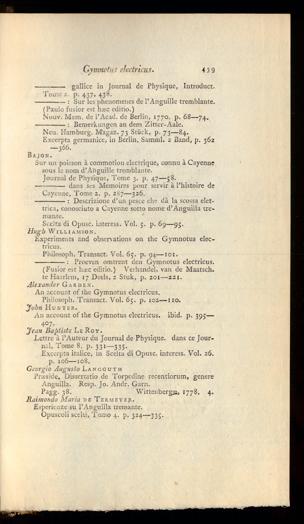 Gymnotus electricus. 439
——— gallice in Journal de Physique, Introduct.
Tome 2. p. 437, 438.
———: Sur les phenomenes de l'Anguille tremblante.
(Paulo fusior est hæc editio.)
Nouv. Mem. de l'Acad. de Berlin, 1770. p. 68—74.
———: Bemerkungen an dem Zitter-Aale.
Neu. Hamburg. Magaz. 73 Stück, p. 73—84.
Excerpta germanice, in Berlin. Samml. 2 Band, p. 362
—366.
BAJON.
Sur un poisson à commotion electrique, connu à Cayenne
sous le nom d'Anguille tremblante.
Journal de Physique, Tome 3. p. 47—58.
——— dans ses Memoires pour servir à l'histoire de
Cayenne, Tome 2. p. 287—326.
———: Descrizione d'un pesce che dà la scossa elet-
trica, conosciuto a Cayenne sotto nome d'Anguilla tre-
mante.
Scelta di Opusc. interess. Vol. 5. p. 69—95.
Hugh WILLIAMSON.
Experiments and observations on the Gymnotus elec-
tricus.
Philosoph. Transact. Vol. 65. p. 94—101.
———: Proeven omtrent den Gymnotus electricus.
(Fusior est hæc editio.) Verhandel. van de Maatsch.
te Haarlem, 17 Deels, 2 Stuk, p. 201—221.
Alexander GARDEN.
An account of the Gymnotus electricus.
Philosoph. Transact. Vol. 65. p. 102—110.
John HUNTER.
An account of the Gymnotus electricus. ibid. p. 395—
407.
Jean Baptiste LE ROY.
Lettre à l'Auteur du Journal de Physique. dans ce Jour-
nal, Tome 8. p. 331—335.
Excerpta italice, in Scelta di Opusc. interess. Vol. 26.
p. 106—108.
Georgio Augusto LANGGUTH
Præside, Dissertatio de Torpedine recentiorum, genere
Anguilla. Resp. Jo. Andr. Garn.
Pagg. 38. Wittenbergæ, 1778. 4.
Raimondo Maria DE TERMEYER.
Esperienze su l'Anguilla tremante.
Opuscoli scelti, Tomo 4. p. 324—335.